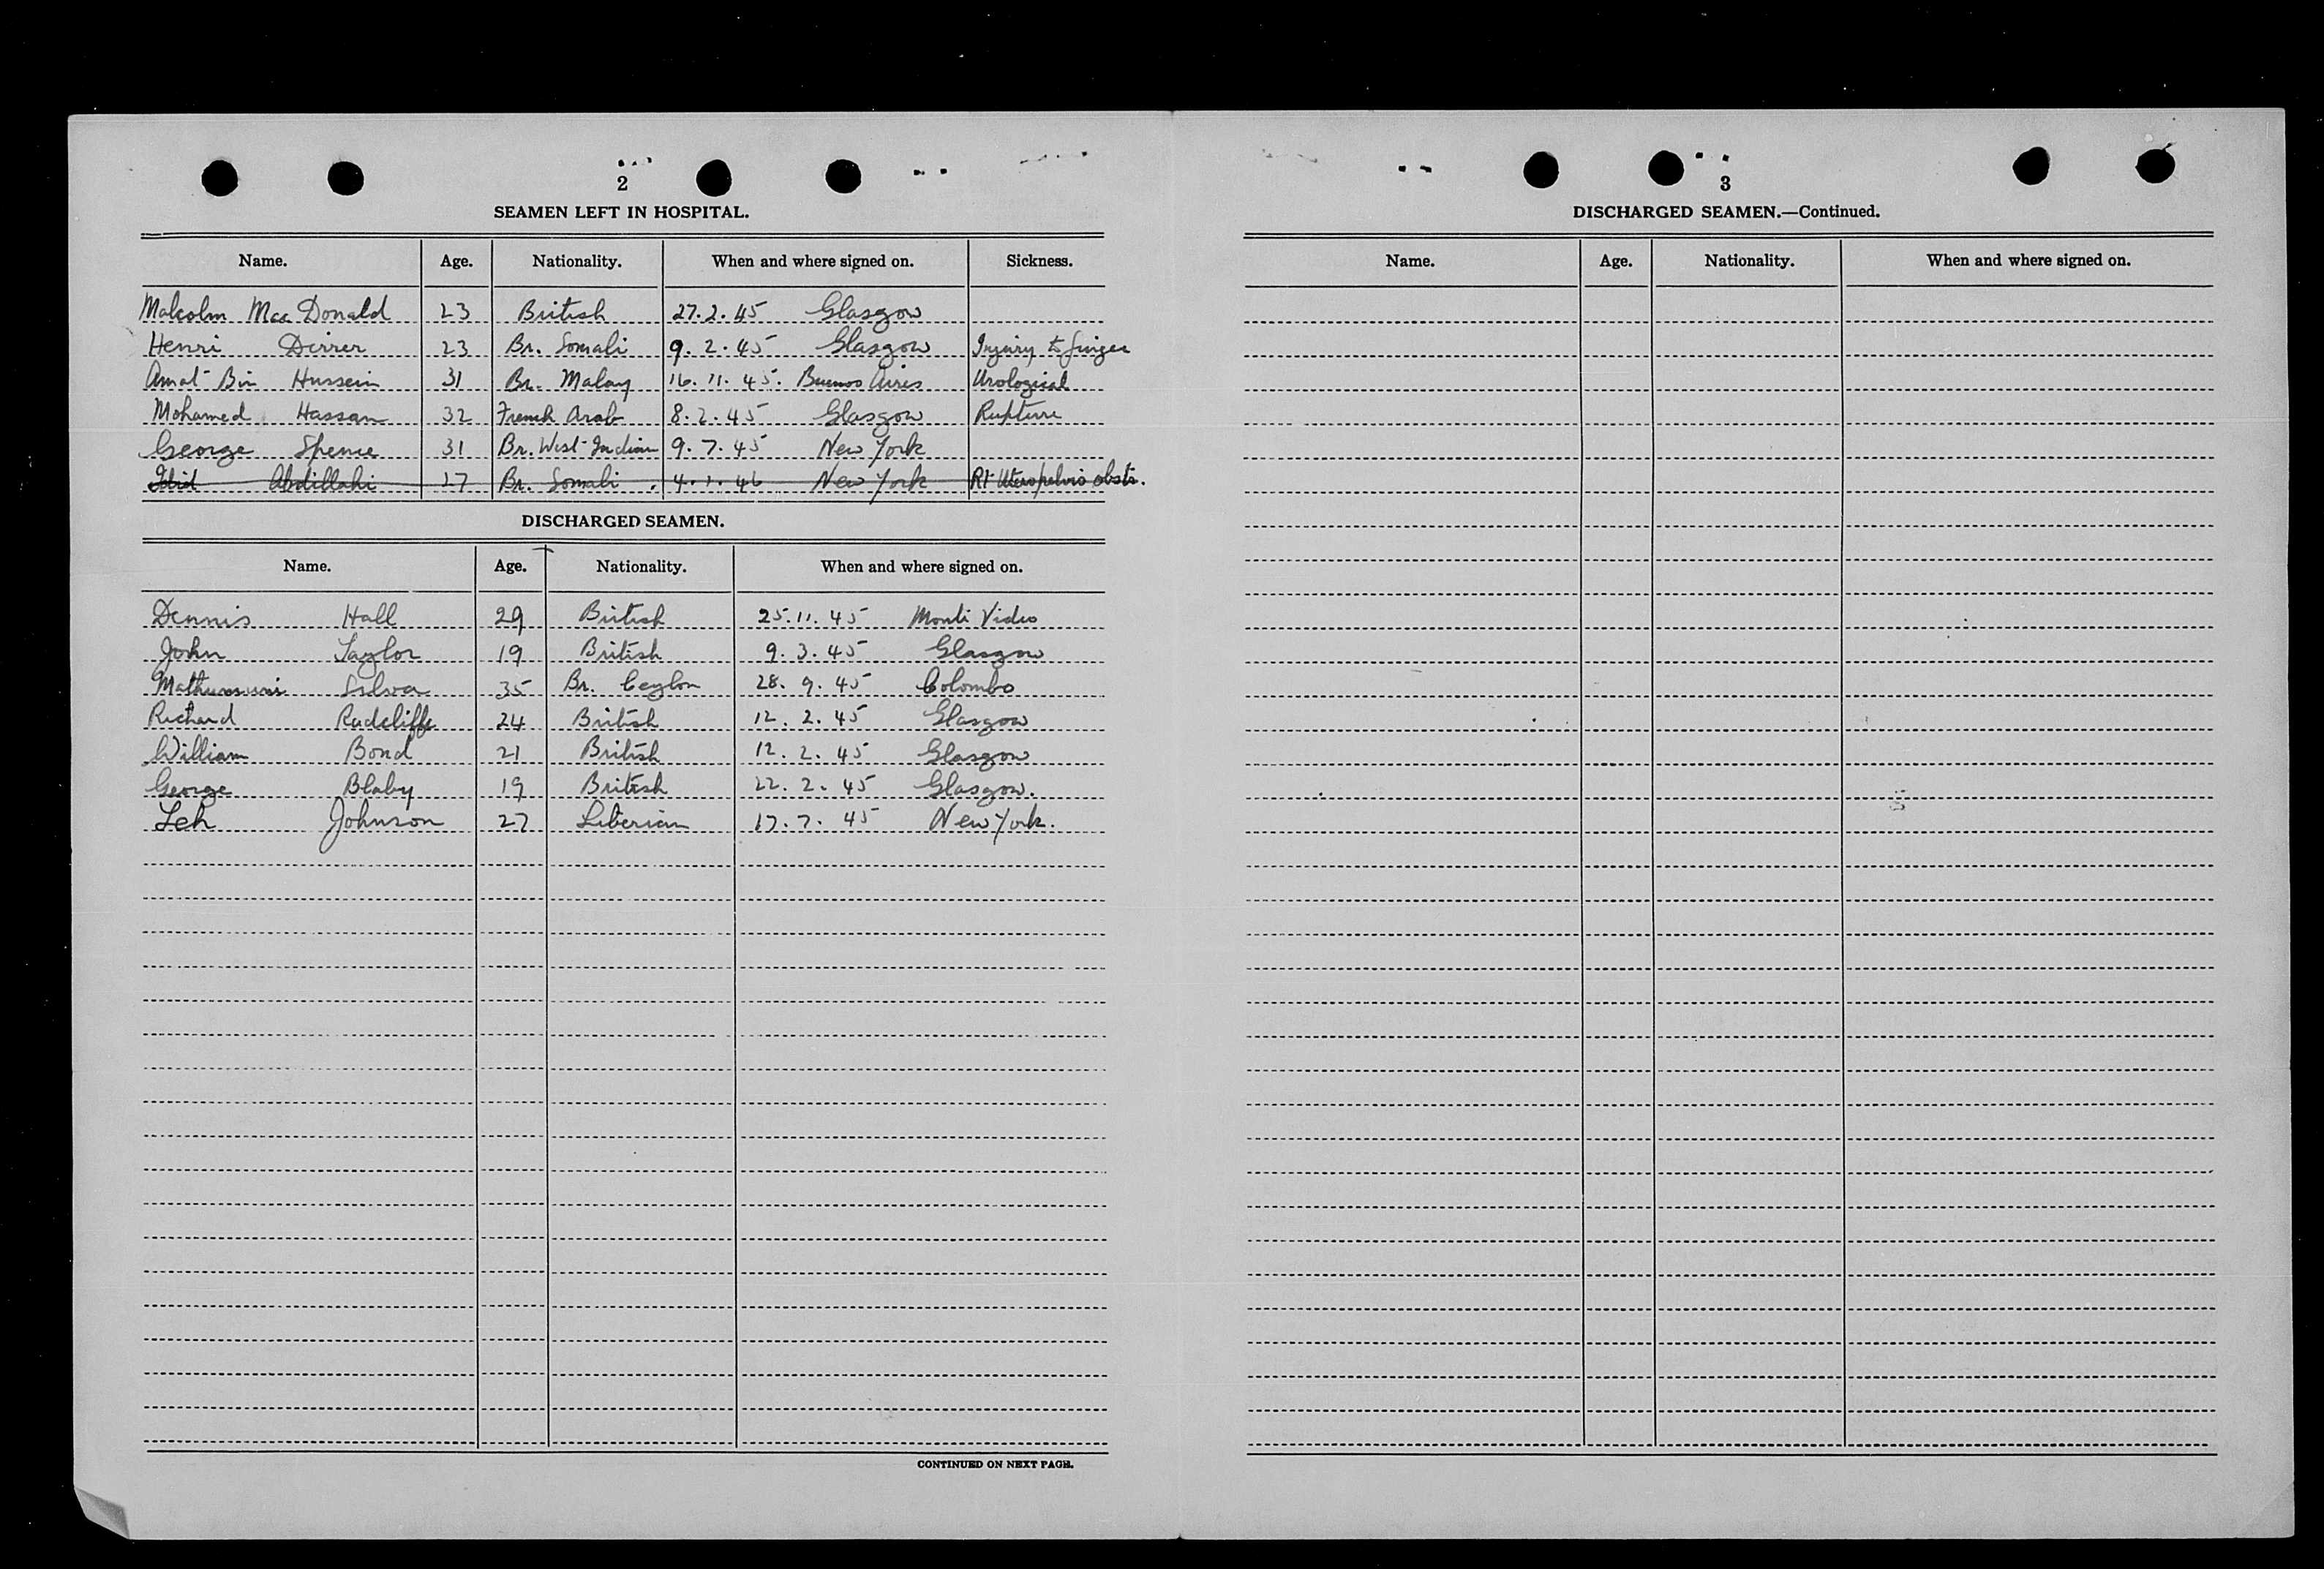 2
SEAMEN LEFT IN HOSPITAL.
Name. Age. Nationality. When and where signed on. Sickness.
Malcolm MacDonald 23 British 27.2.45 Glasgow
Henri Dirrer 23 Br. Somali 9.2.45 Glasgow Injury to finger
Amat Bin Hussein 31 Br. Malay 16.11.45. Buenos Aires Urological
Mohamed Hassan 32 French Arab 8.2.45 Glasgow Rupture
George Spence 31 Br. West Indian 9.7.45 New York
Abdillahi 27 Br. Somali. 4.1.46 New York Rt obstr.
DISCHARGED SEAMEN.
Name. Age. Nationality. When and where signed on.
Dennis Hall 29 British 25.11.45 Monti Video
John Taylor 19 British 9.3.45 Glasgow
Silva 35 Br. Ceylon 28.9.45 Colombo
Richard Radcliffe 24 British 12.2.45 Glasgow
William Bond 21 British 12.2.45 Glasgow
George Blaby 19 British 22.2.45 Glasgow.
Leh Johnson 27 Liberian 17.7.45 New York.
CONTINUED ON NEXT PAGE.
3
DISCHARGED SEAMEN.—Continued.
Name. Age. Nationality. When and where signed on.